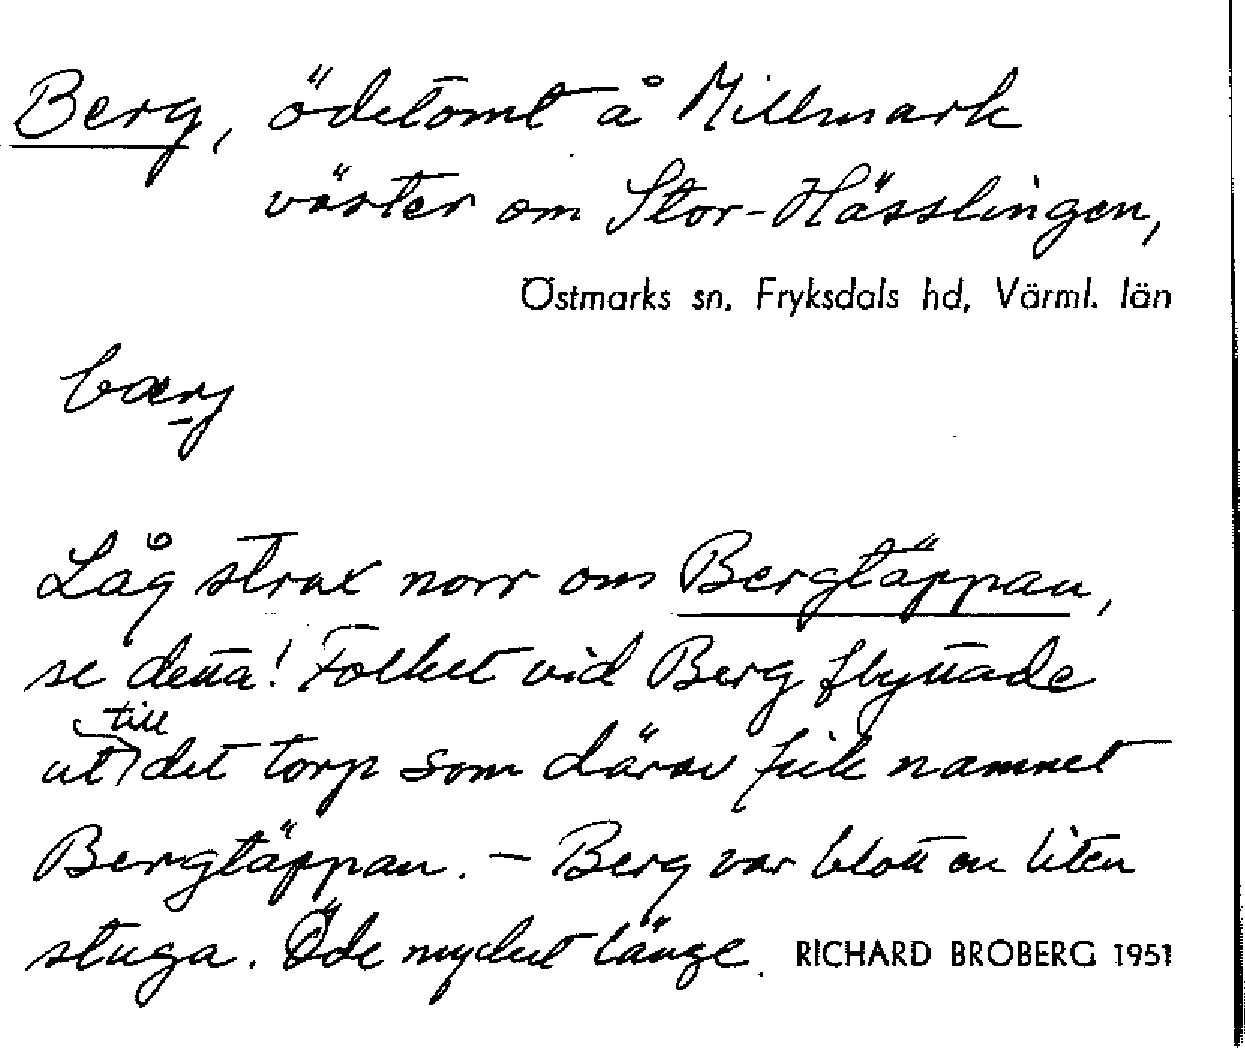 Berg, ödetomt å Millmark
väster om Stor-Hässlingen,
Östmarks sn. Fryksdals hd, Värml. län
bærj
Låg strax norr om Bergtäppan,
se detta! Folket vid Berg flyttade
ut till det torp som därav fick namnet
Bergtäppan. – Berg var blott en liten
stuga. Öde mycket länge. RICHARD BROBERG 1951